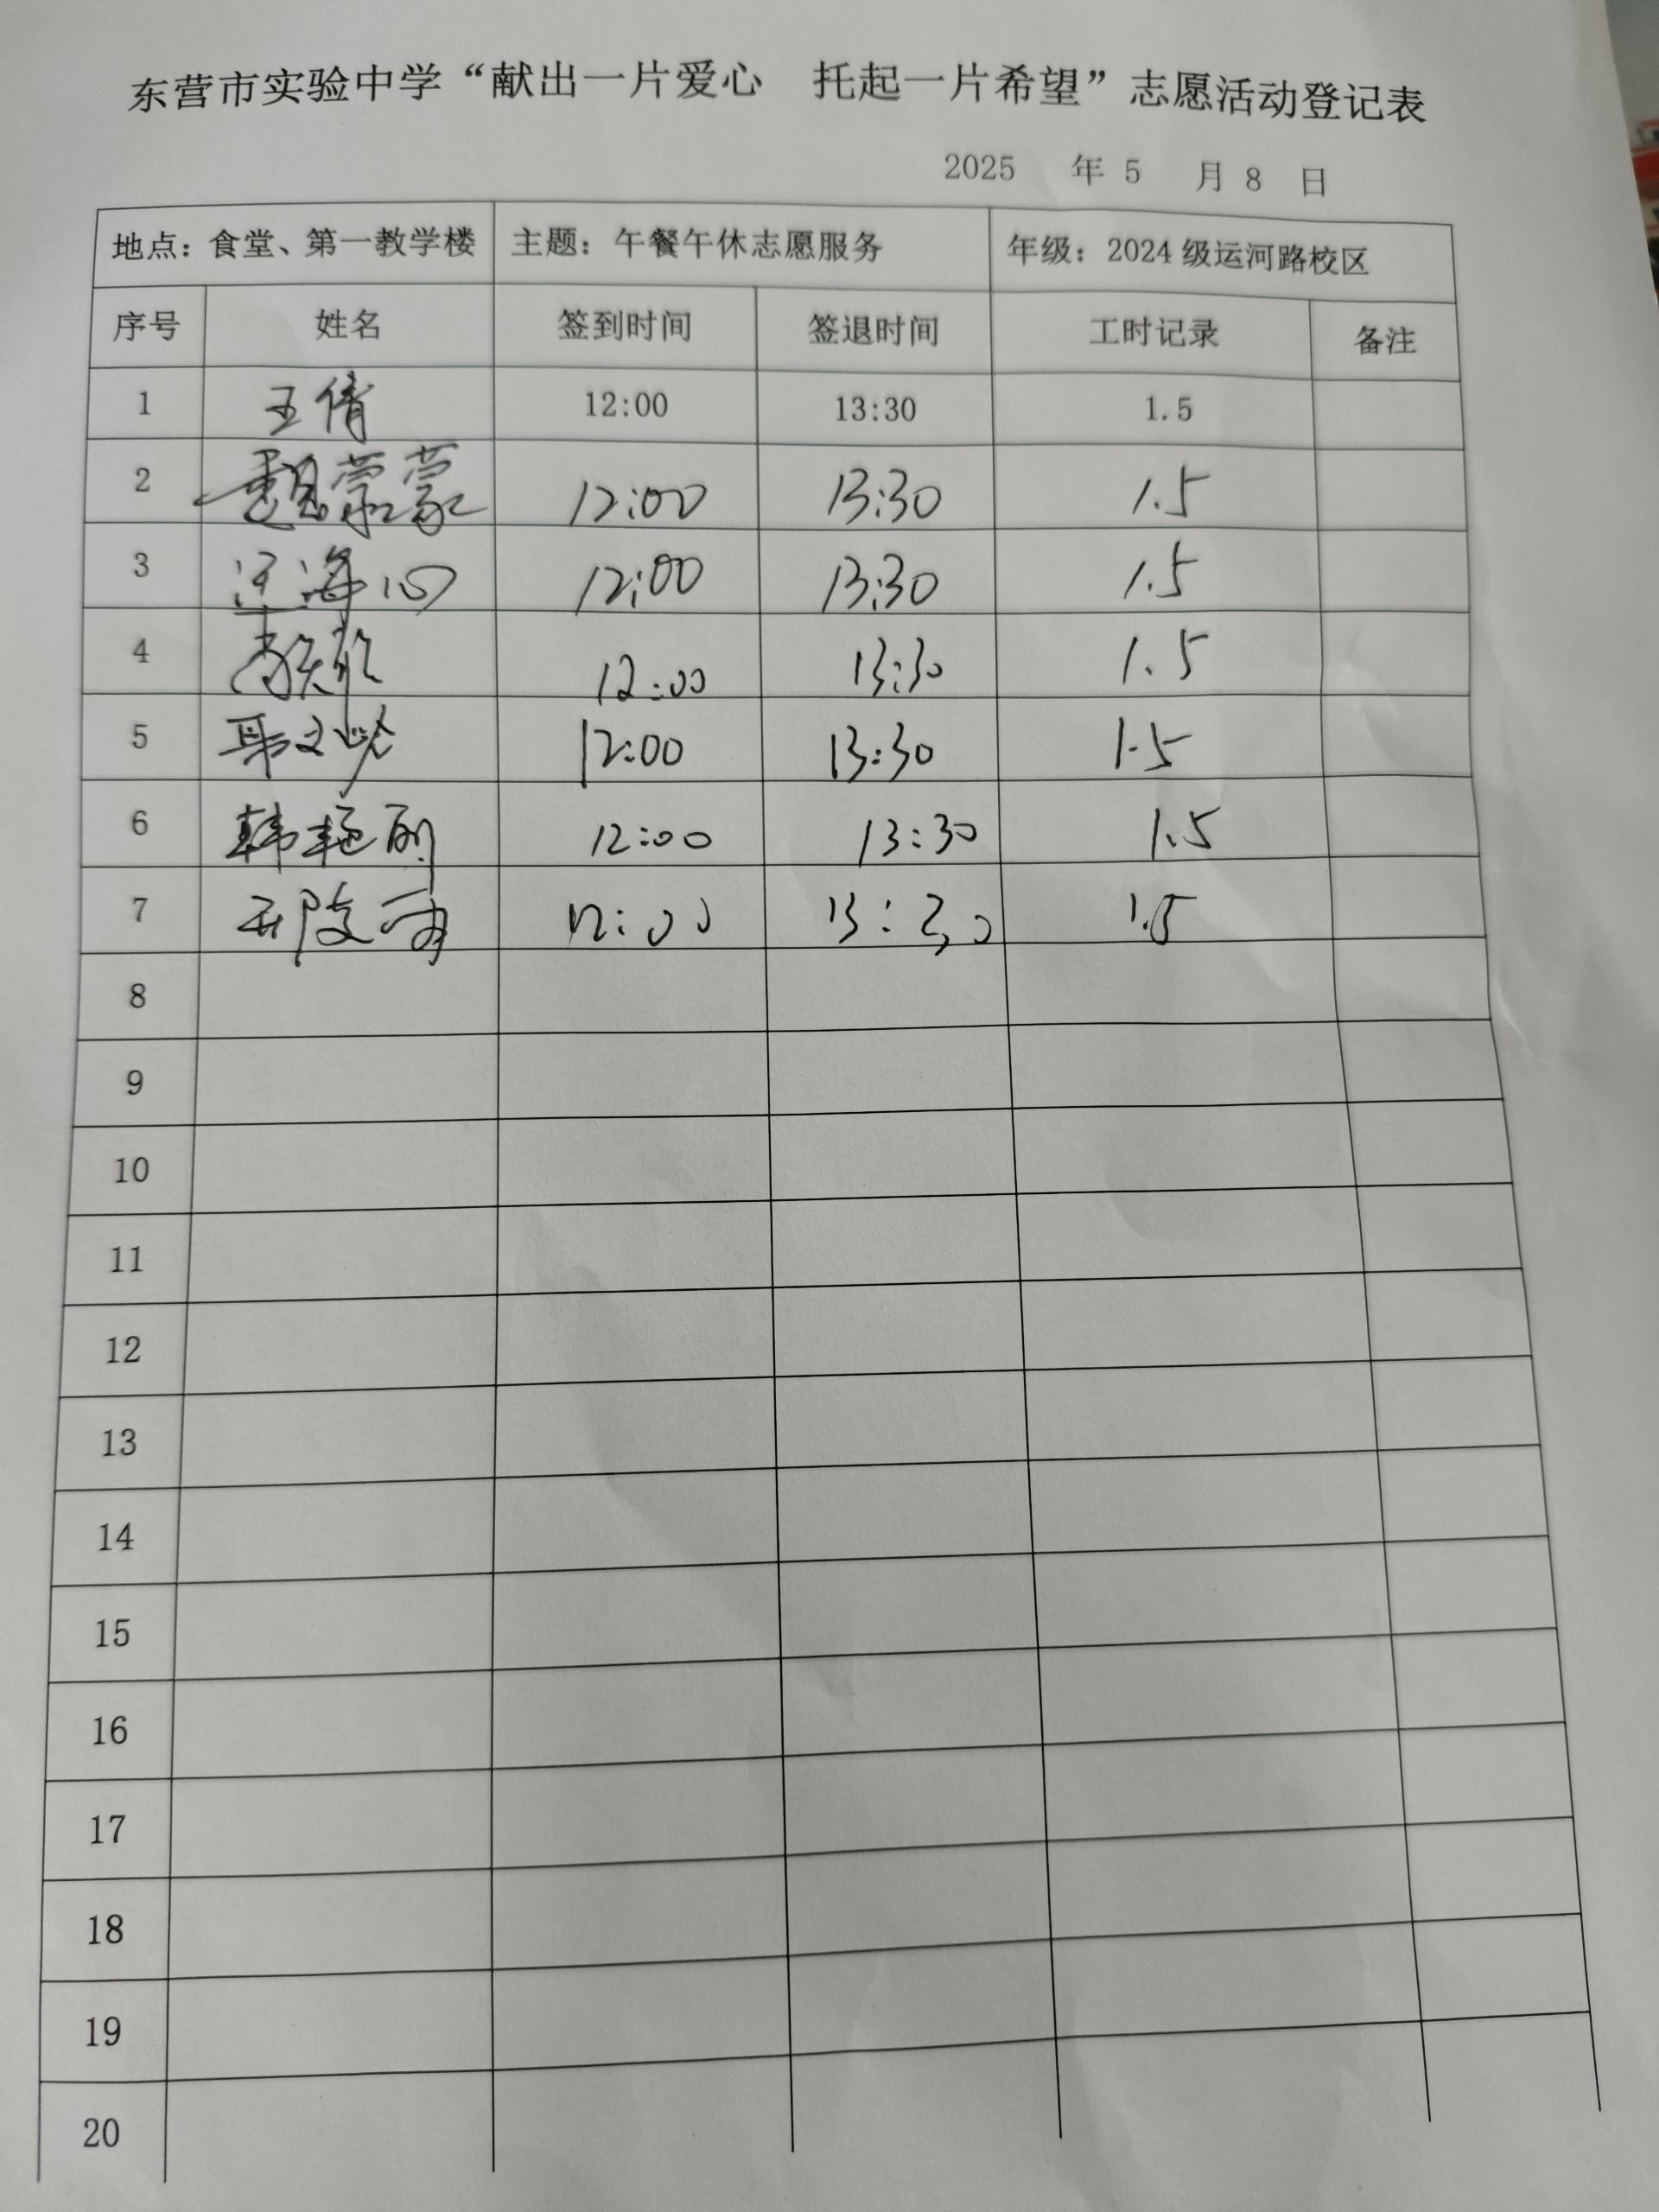 东营市实验中学“献出一片爱心 托起一片希望”志愿活动登记表
2025 年 5 月 8 日
地点：食堂、第一教学楼 主题：午餐午休志愿服务 年级：2024 级运河路校区
序号 姓名 签到时间 签退时间 工时记录 备注
1 王倩 12:00 13:30 1.5
2 蒙蒙 12:00 13:30 1.5
3 12:00 13:30 1.5
4 12:00 13:30 1.5
5 12:00 13:30 1.5
6 韩艳丽 12:00 13:30 1.5
7 12:00 13:30 1.5
8
9
10
11
12
13
14
15
16
17
18
19
20